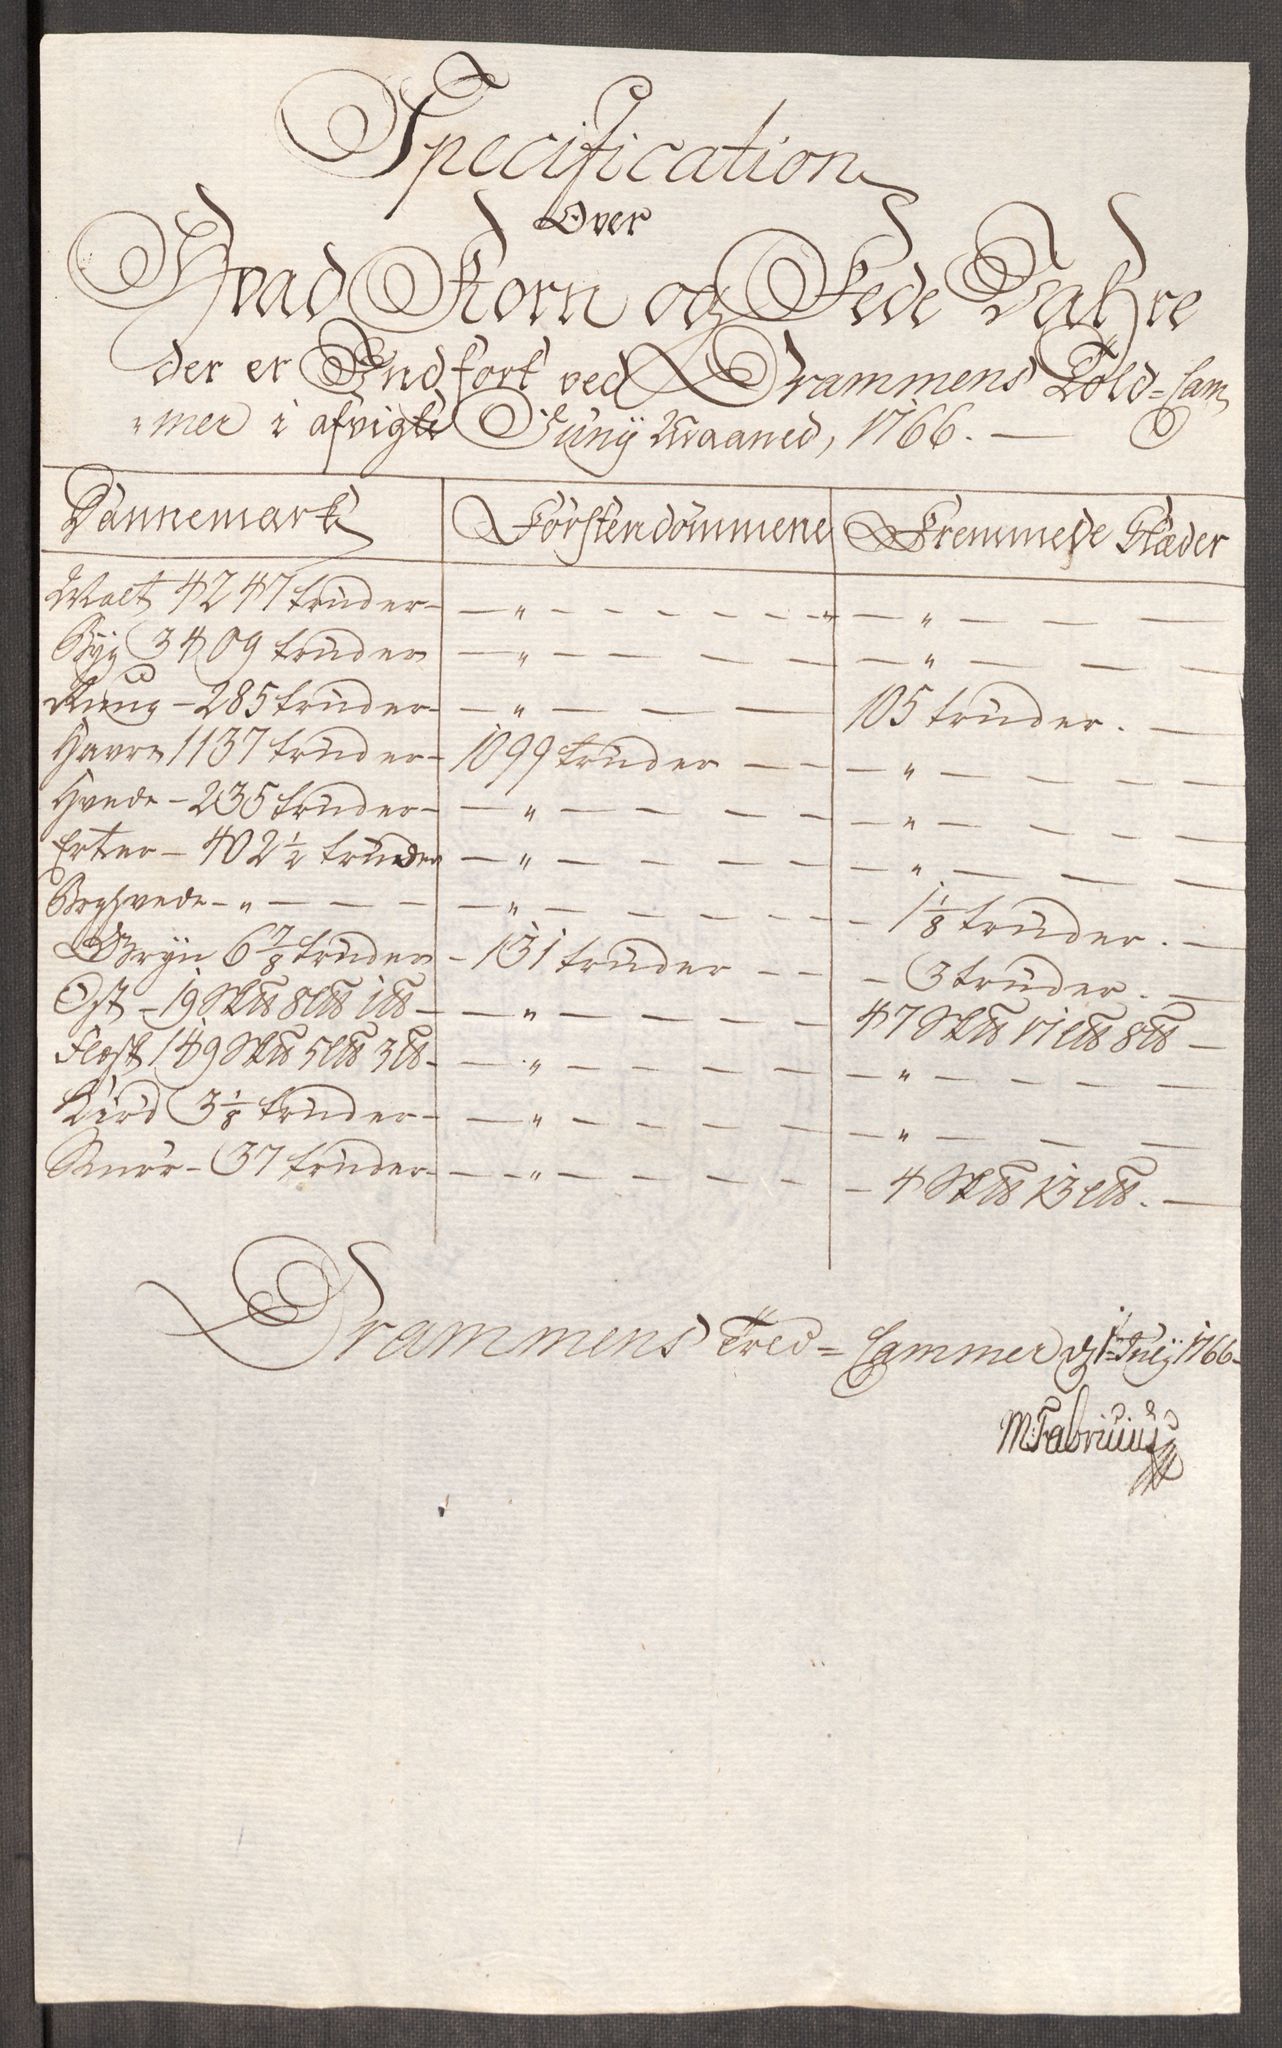 Specification
Over
Hvad Korn og Fede Vahre
der er Indført ved Drammens Told=Cam
"mer i afvigte Junÿ Maaned, 1766. —
Dannemark Førstendömmene Fremmede Stæder
Malt 4247 tønder — " — "
Byg 3409 tønder — " — "
Rüug — 285 tønder — " — 105 tønder. —
Havre 1137 tønder — 1099 tønder — "
Hvede — 235 tønder — " — "
Erter — 402 1/2 tønder — " — "
Boghvede — " — " — 1 1/8 tønder. —
Grÿn 6 7/8 tønder — 131 tønder — 3 tønder. —
Ost — 19 S℔ 8 L℔ 1 ℔ — " — 47 S℔ 17 L℔ 8 ℔ —
Flæsk 149 S℔ 5 L℔ 3 ℔ — " — "
Kiød 3 1/8 tønder — " — "
Smør — 37 tønder — " — 4 S℔ 13 L℔. —
Drammens Told=Cammer d 1 Julÿ 1766
M Fabricius